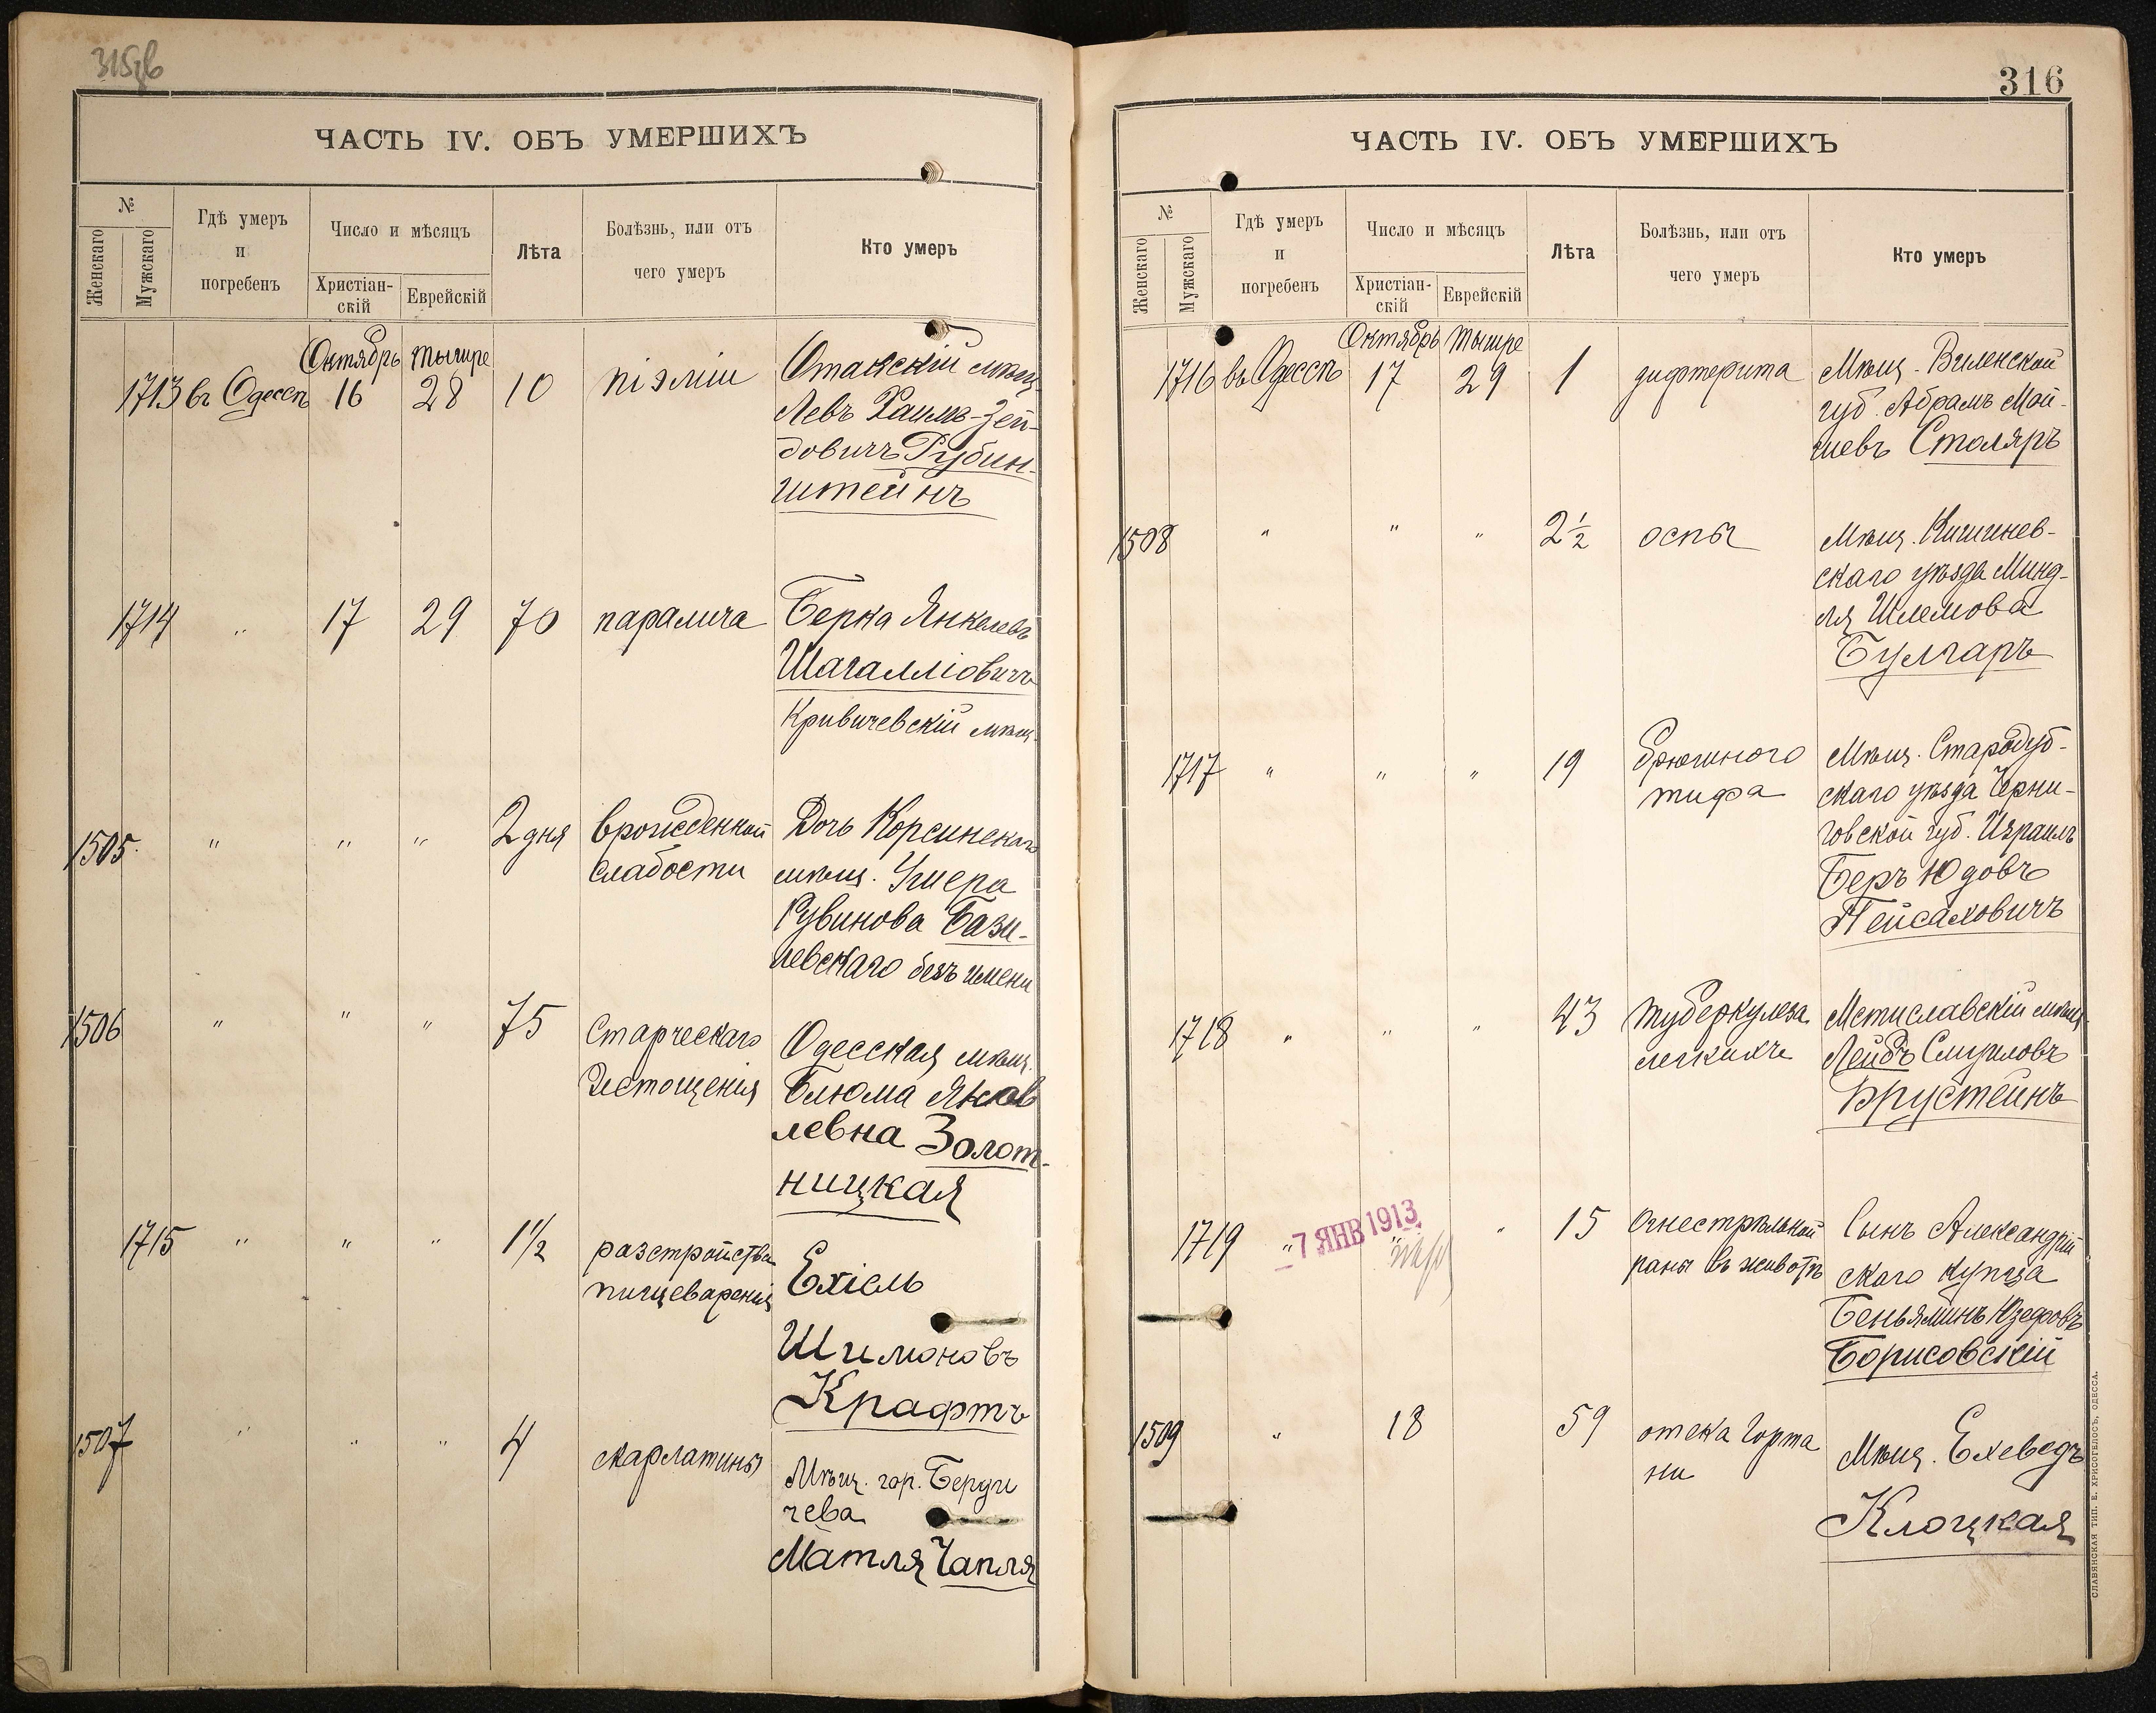 315об
ЧАСТЬ IV. ОБЪ УМЕРШИХЪ
№
Женскаго
Мужскаго
Гдѣ умеръ
и
погребенъ
Число и мѣсяцъ
Христіан-
скій
Еврейскій
Лѣта
Болѣзнь, или отъ
чего умеръ
Кто умеръ
Октябрь Тишре
1713 въ Одессѣ 16 28 10 піэміи Отакскій мѣщ.
Левъ Хаимъ-Зей-
довичъ Рубин-
штейнъ
1714 " 17 29 70 паралича Берка Янкелевъ
Шагалліовичъ
Кривичевскій мѣщ.
1505 " " " 2 дня врожденной Дочь Корсинскаго
слабости мѣщ. Ушера
Рувинова Бази-
левскаго безъ имени
1506 " " " 75 Старческаго Одесская мѣщ.
Истощенія Блюма Яков
левна Золот-
ницкая
1715 " " " 1 1/2 разстройства Ехіель
пищеваренія
Шимоновъ
Крафтъ
1507 " " " 4 скарлатины Мѣщ. гор. Берди
чева
Матля Чапля
316
ЧАСТЬ IV. ОБЪ УМЕРШИХЪ
№
Женскаго
Мужскаго
Гдѣ умеръ
и
погребенъ
Число и мѣсяцъ
Христіан-
скій
Еврейскій
Лѣта
Болѣзнь, или отъ
чего умеръ
Кто умеръ
Октябрь Тишре
1716 въ Одессѣ 17 29 1 дифтерита Мѣщ. Виленской
губ. Абрамъ Мой-
шевъ Столяръ
1508 " " " 2 1/2 оспы Мѣщ. Кишинев-
скаго уѣзда Минд-
ля Шлемова
Булгаръ
1717 " " " 19 брюшного Мѣщ. Стародуб-
тифа скаго уѣзда Черни-
говской губ. Израиль
Беръ Юдовъ
Пейсаховичъ
1718 " " " 43 туберкулеза Мстиславскій мѣщ.
легкихъ Лейбъ Смуиловъ
Брустейнъ
1719 " " " 15 Огнестрѣльной Сынъ Александрій
раны въ животъ скаго купца
Беньяминъ Юзефовъ
Борисовскій
-7 ЯНВ 1913
1509 " 18 59 отека Горта Мѣщ. Ехеведъ
ни
Клоцкая
СЛАВЯНСКАЯ ТИП. Е. ХРИСОГЕЛОСЪ, ОДЕССА.